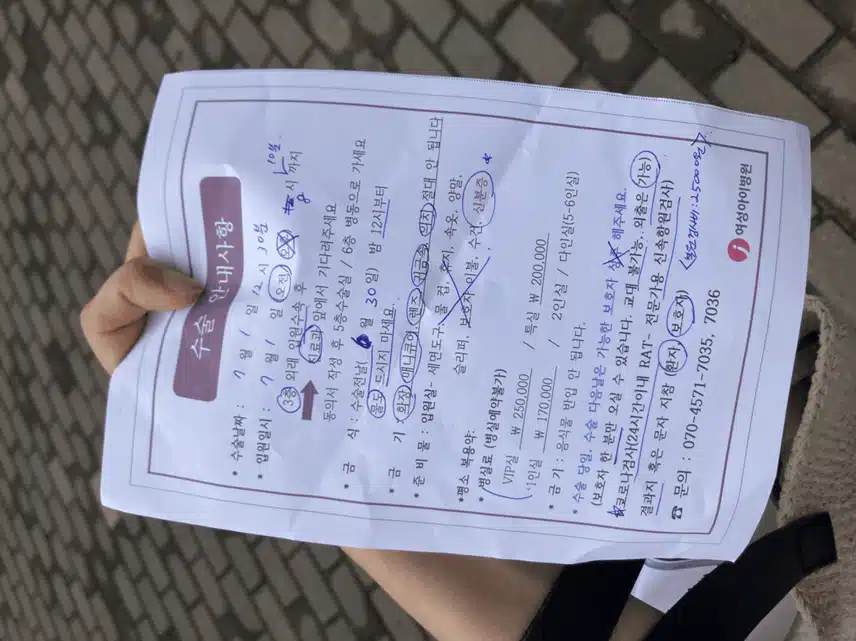 수술 안내사항
* 수술날짜 : 7 월 1 일 12 시 30분
* 입원일시 : 7 월 1 일 (오전) 8 시 10분 까지
3층 외래 입원수속 후
진료과 앞에서 기다려주세요
동의서 작성 후 5층수술실 / 6층 병동으로 가세요
* 금 식 : 수술전날( 6 월 30 일) 밤 12시부터
물도 드시지 마세요.
* 금 기 : 화장, 매니큐어, 렌즈, 귀금속, 의치 절대 안 됩니다
* 준 비 물 : 입원실- 세면도구, 물 컵, 휴지, 속옷, 양말,
슬리퍼, 보호자 이불, 수건, 신분증
*평소 복용약:
* 병실료 (병실예약불가)
VIP실 ₩ 250,000 / 특실 ₩ 200,000
1인실 ₩ 170,000 / 2인실 / 다인실(5-6인실)
* 금 기 : 음식물 반입 안 됩니다.
* 수술 당일, 수술 다음날은 가능한 보호자 상주 해주세요.
(보호자 한 분만 오실 수 있습니다. 교대 불가능, 외출은 가능)
코로나검사(24시간이내 RAT- 전문가용 신속항원검사)
결과지 혹은 문자 지참 (환자, 보호자) <본원검사비:25000원>
☎ 문의 : 070-4571-7035, 7036
여성아이병원